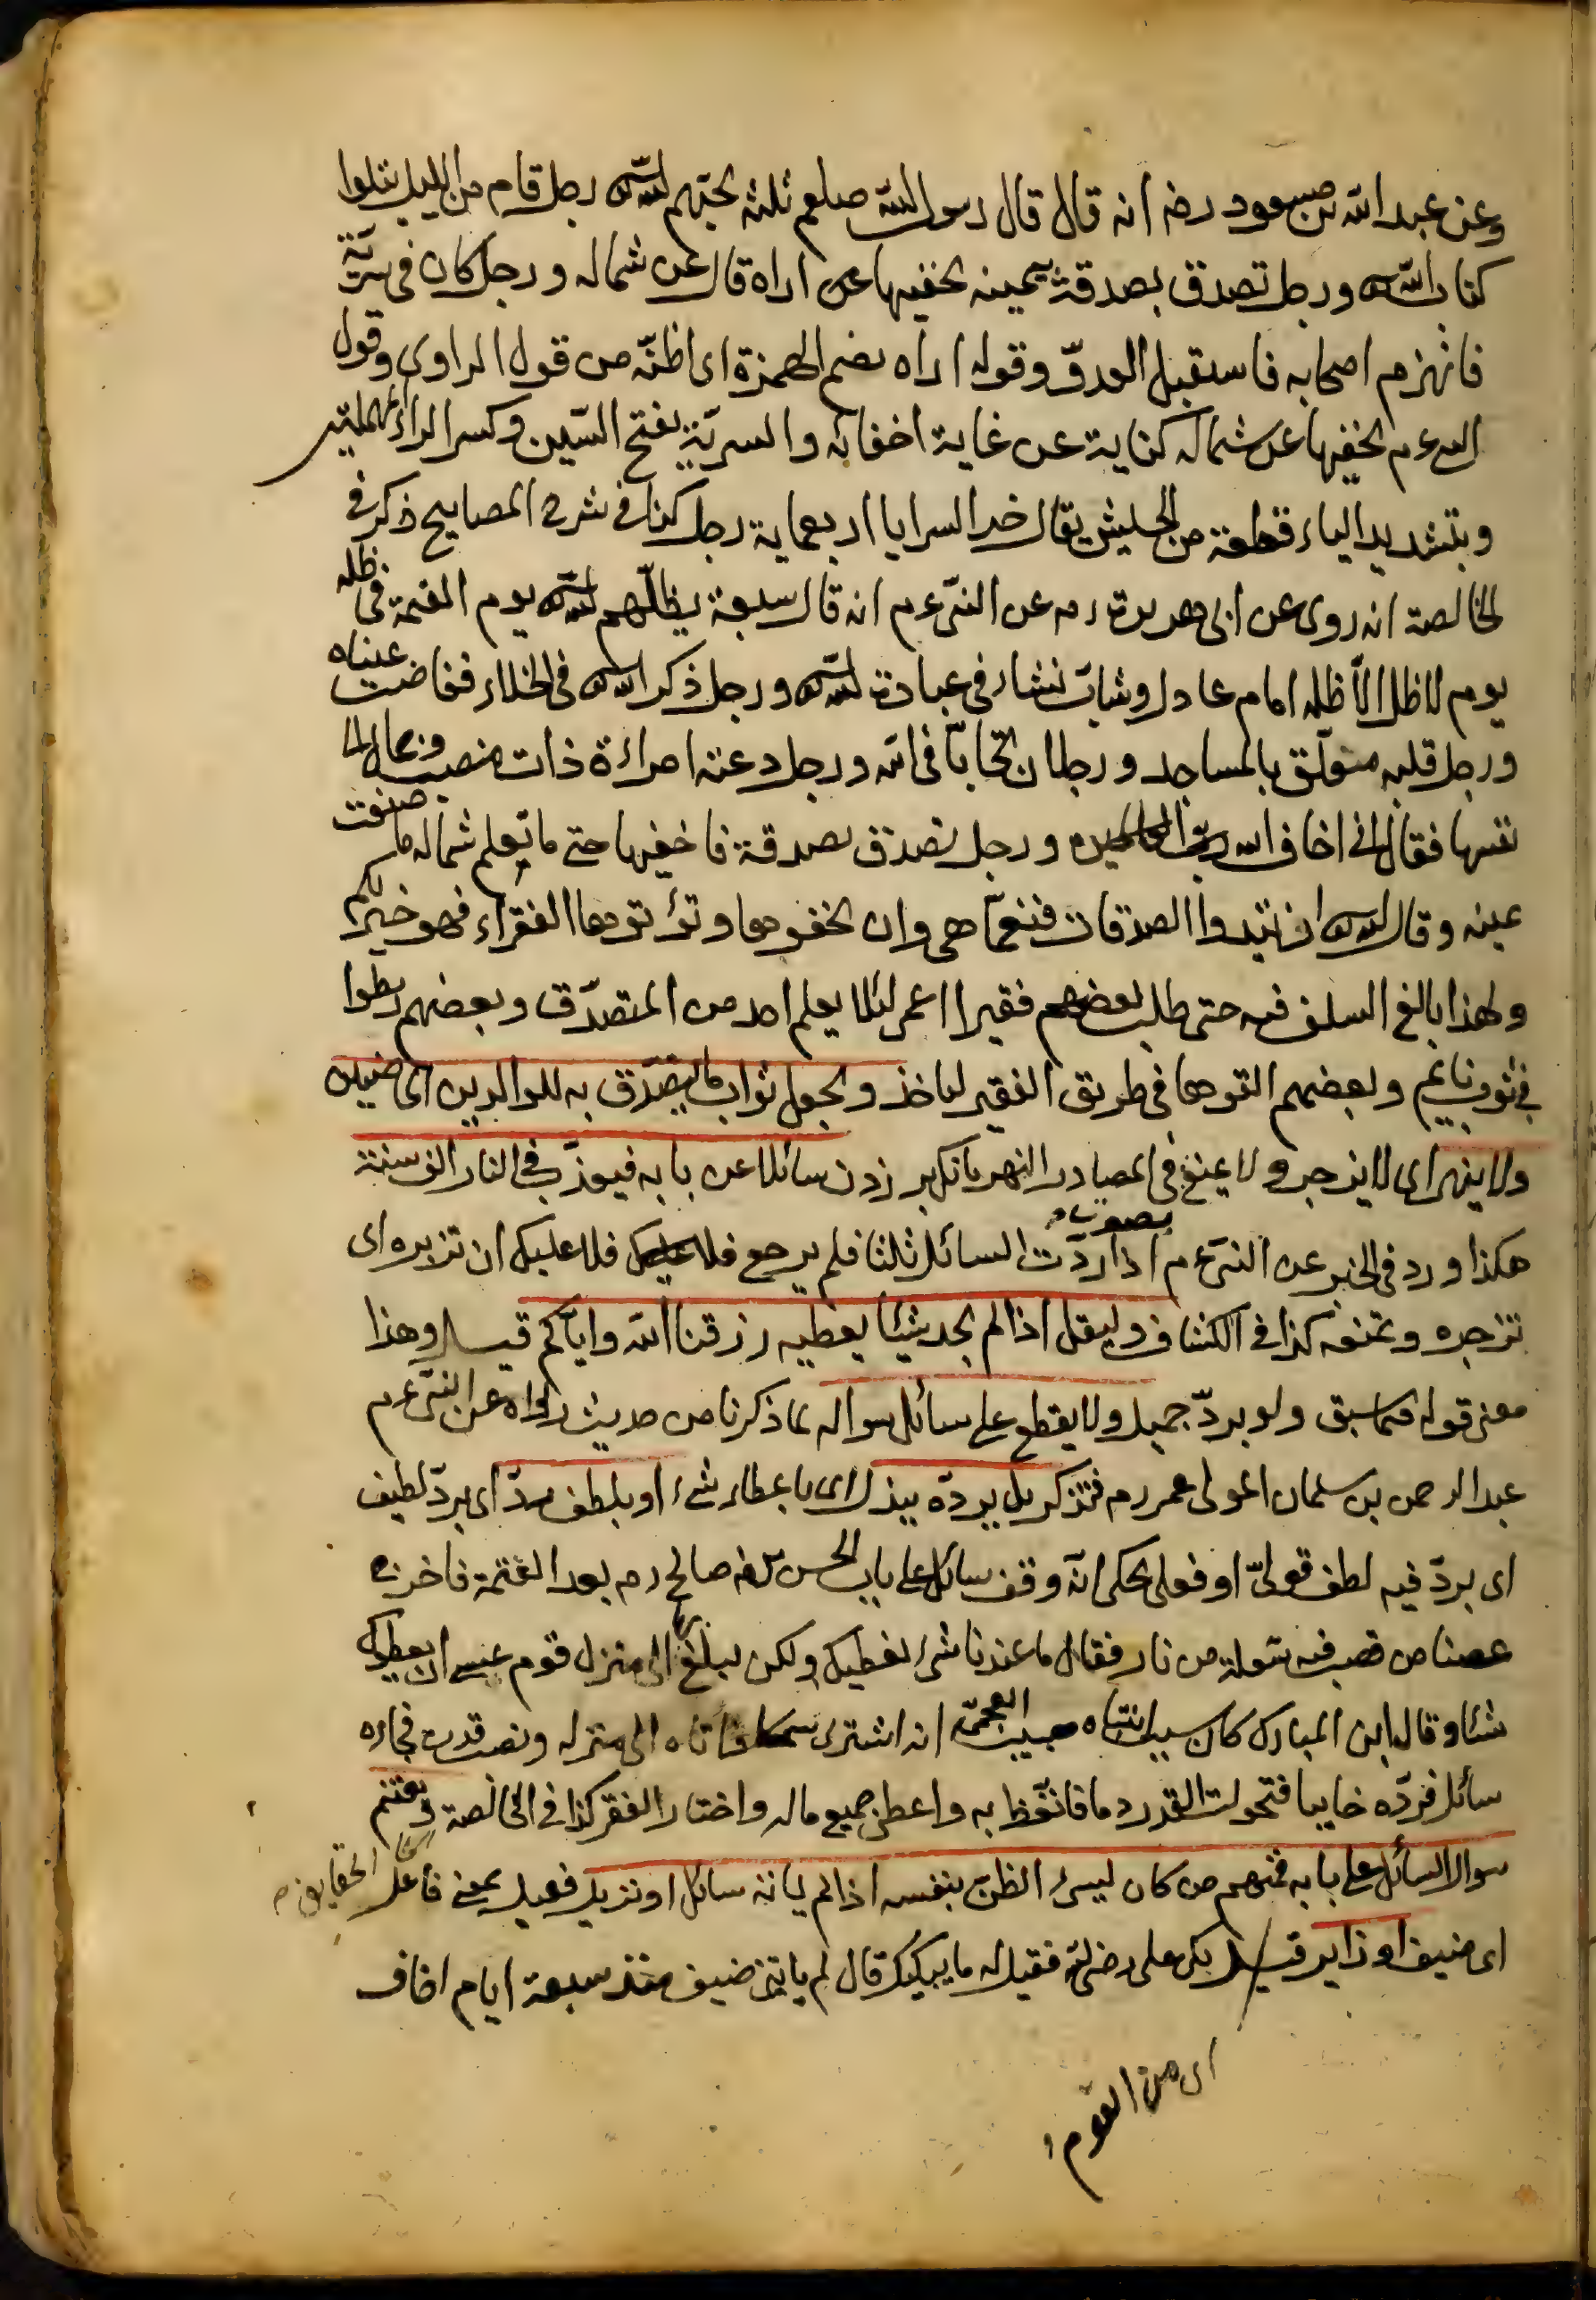 وعن عبد الله بن مسعود رضه انه قال قال رسول الله صلعم ثلثة يحبّهم الله رجل قام من الليل يتلوا
كتاب الله ورجل تصدق بصدقة بيمينه يخفيها عن اراه قال عن شماله ورجل كان فى سريّة
فانهزم اصحابه فاستقبل العدوّ وقوله اراه بضم الهمزة اى اظنّه من قول الراوى وقول
النبى ءم يخفيها عن شماله كناية عن غاية اخفائه والسريّة بفتح السّين وكسر الراء المهملتين
وبتشديد الياء قطعة من الجيش يقال خير السرايا اربعماية رجل كذا فى شرح المصابيح ذكر فى
الخالصة انه روى عن ابى هريرة رم عن النبى ءم انه قال سبعة يظلّهم الله يوم القيمة فى ظله
يوم لا ظل الّا ظله امام عادل وشابّ نشاء فى عبادة الله ورجل ذكر الله فى الخلاء ففاضت عيناه
ورجل قلبه متعلّق بالمساجد ورجلان تحابّا فى الله ورجل دعته امراءة ذات منصب وجمال الى
نفسها فقال انى اخاف الله ربّ العالمين ورجل تصدّق بصدقة فاخفيها حتى ما تعلم شماله ما صنعت
يمينه وقال الله ان تبدوا الصدقات فنعمّا هى وان تخفوها وتؤتوها الفقراء فهو خير لكم
ولهذا بالغ السلف فيه حتى طلب بعضهم فقيرا اعمى لئلا يعلم احد من المتصدّق وبعضهم ربطوا
فى ثوب نايم وبعضهم القوها فى طريق الفقير لياخذ ويجعل ثواب ما يتصدّق به للوالدين اى
ولا ينهر اى لا يزجر ولا يمنع فى المصادر النهر بانك بر زدن سائلا عن بابه فيعذّب فى النار الف سنة
هكذا ورد فى الخبر عن النبى ءم اذا رددت السائل ثلثا فلم يرجع فلا عليك ان تزبره اى
تزجره وتمنعه كذا فى الكشاف وليقل اذا لم يجد شيئا يعطيه رزقنا الله وايّاكم قيل وهذا
معنى قوله فما سبق ولو بردّ جميل ولا يقطع على سائل سواله لما ذكرنا من حديث رواه عن النبى ءم
عبد الرحمن بن سلمان المولى عمر رم فتذكر بل يردّه ببذل اى باعطاء شىء او بلطف ردّ اى بردّ لطيف
اى بردّ فيه لطف قولىّ او فعلى يحكى انّه وقف سائل على باب الحسن بن صالح رم بعد العتمة فاخرج
عصا من قصب فيه شعلة من نار فقال ما عندنا شىء نعطيك ولكن تبلغ بها الى منزل قوم عسى ان يعطيك
شئا وقال ابن المبارك كان سبب انتباه حبيب العجمىّ انه اشترى سمكا فاتاه الى منزله ونصب قدرا فجاءه
سائل فردّه خايبا فتحولت القدر دما فاتّعظ به واعطى جميع ماله واختار الفقر كذا فى الخالصة ويغتنم
سوال السائل على بابه فمنهم من كان ليسئ الظنّ بنفسه اذا لم ياته سائل او نزيل فعيل بمعنى فاعل
اى ضيف او زاير قيل بكى على رضى الله فقيل له ما يبكيك قال لم ياتنى ضيف منذ سبعة ايام اخاف
اى من القوم